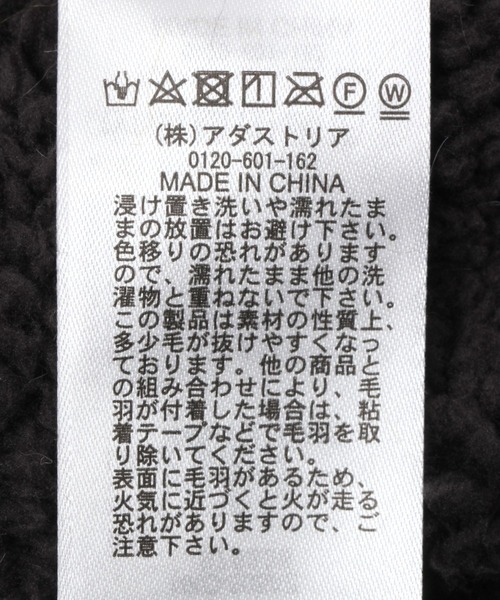 F W
(株)アダストリア
0120-601-162
MADE IN CHINA
浸け置き洗いや濡れたま
まの放置はお避け下さい。
色移りの恐れがあります
ので、濡れたまま他の洗
濯物と重ねないで下さい。
この製品は素材の性質上、
多少毛が抜けやすくなっ
ております。他の商品と
の組み合わせにより、毛
羽が付着した場合は、粘
着テープなどで毛羽を取
り除いてください。
表面に毛羽があるため、
火気に近づくと火が走る
恐れがありますので、ご
注意下さい。